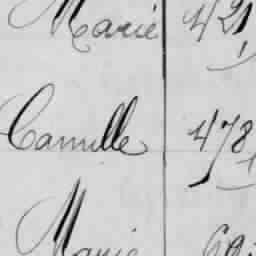 Marie 421
Camille 478
Marie